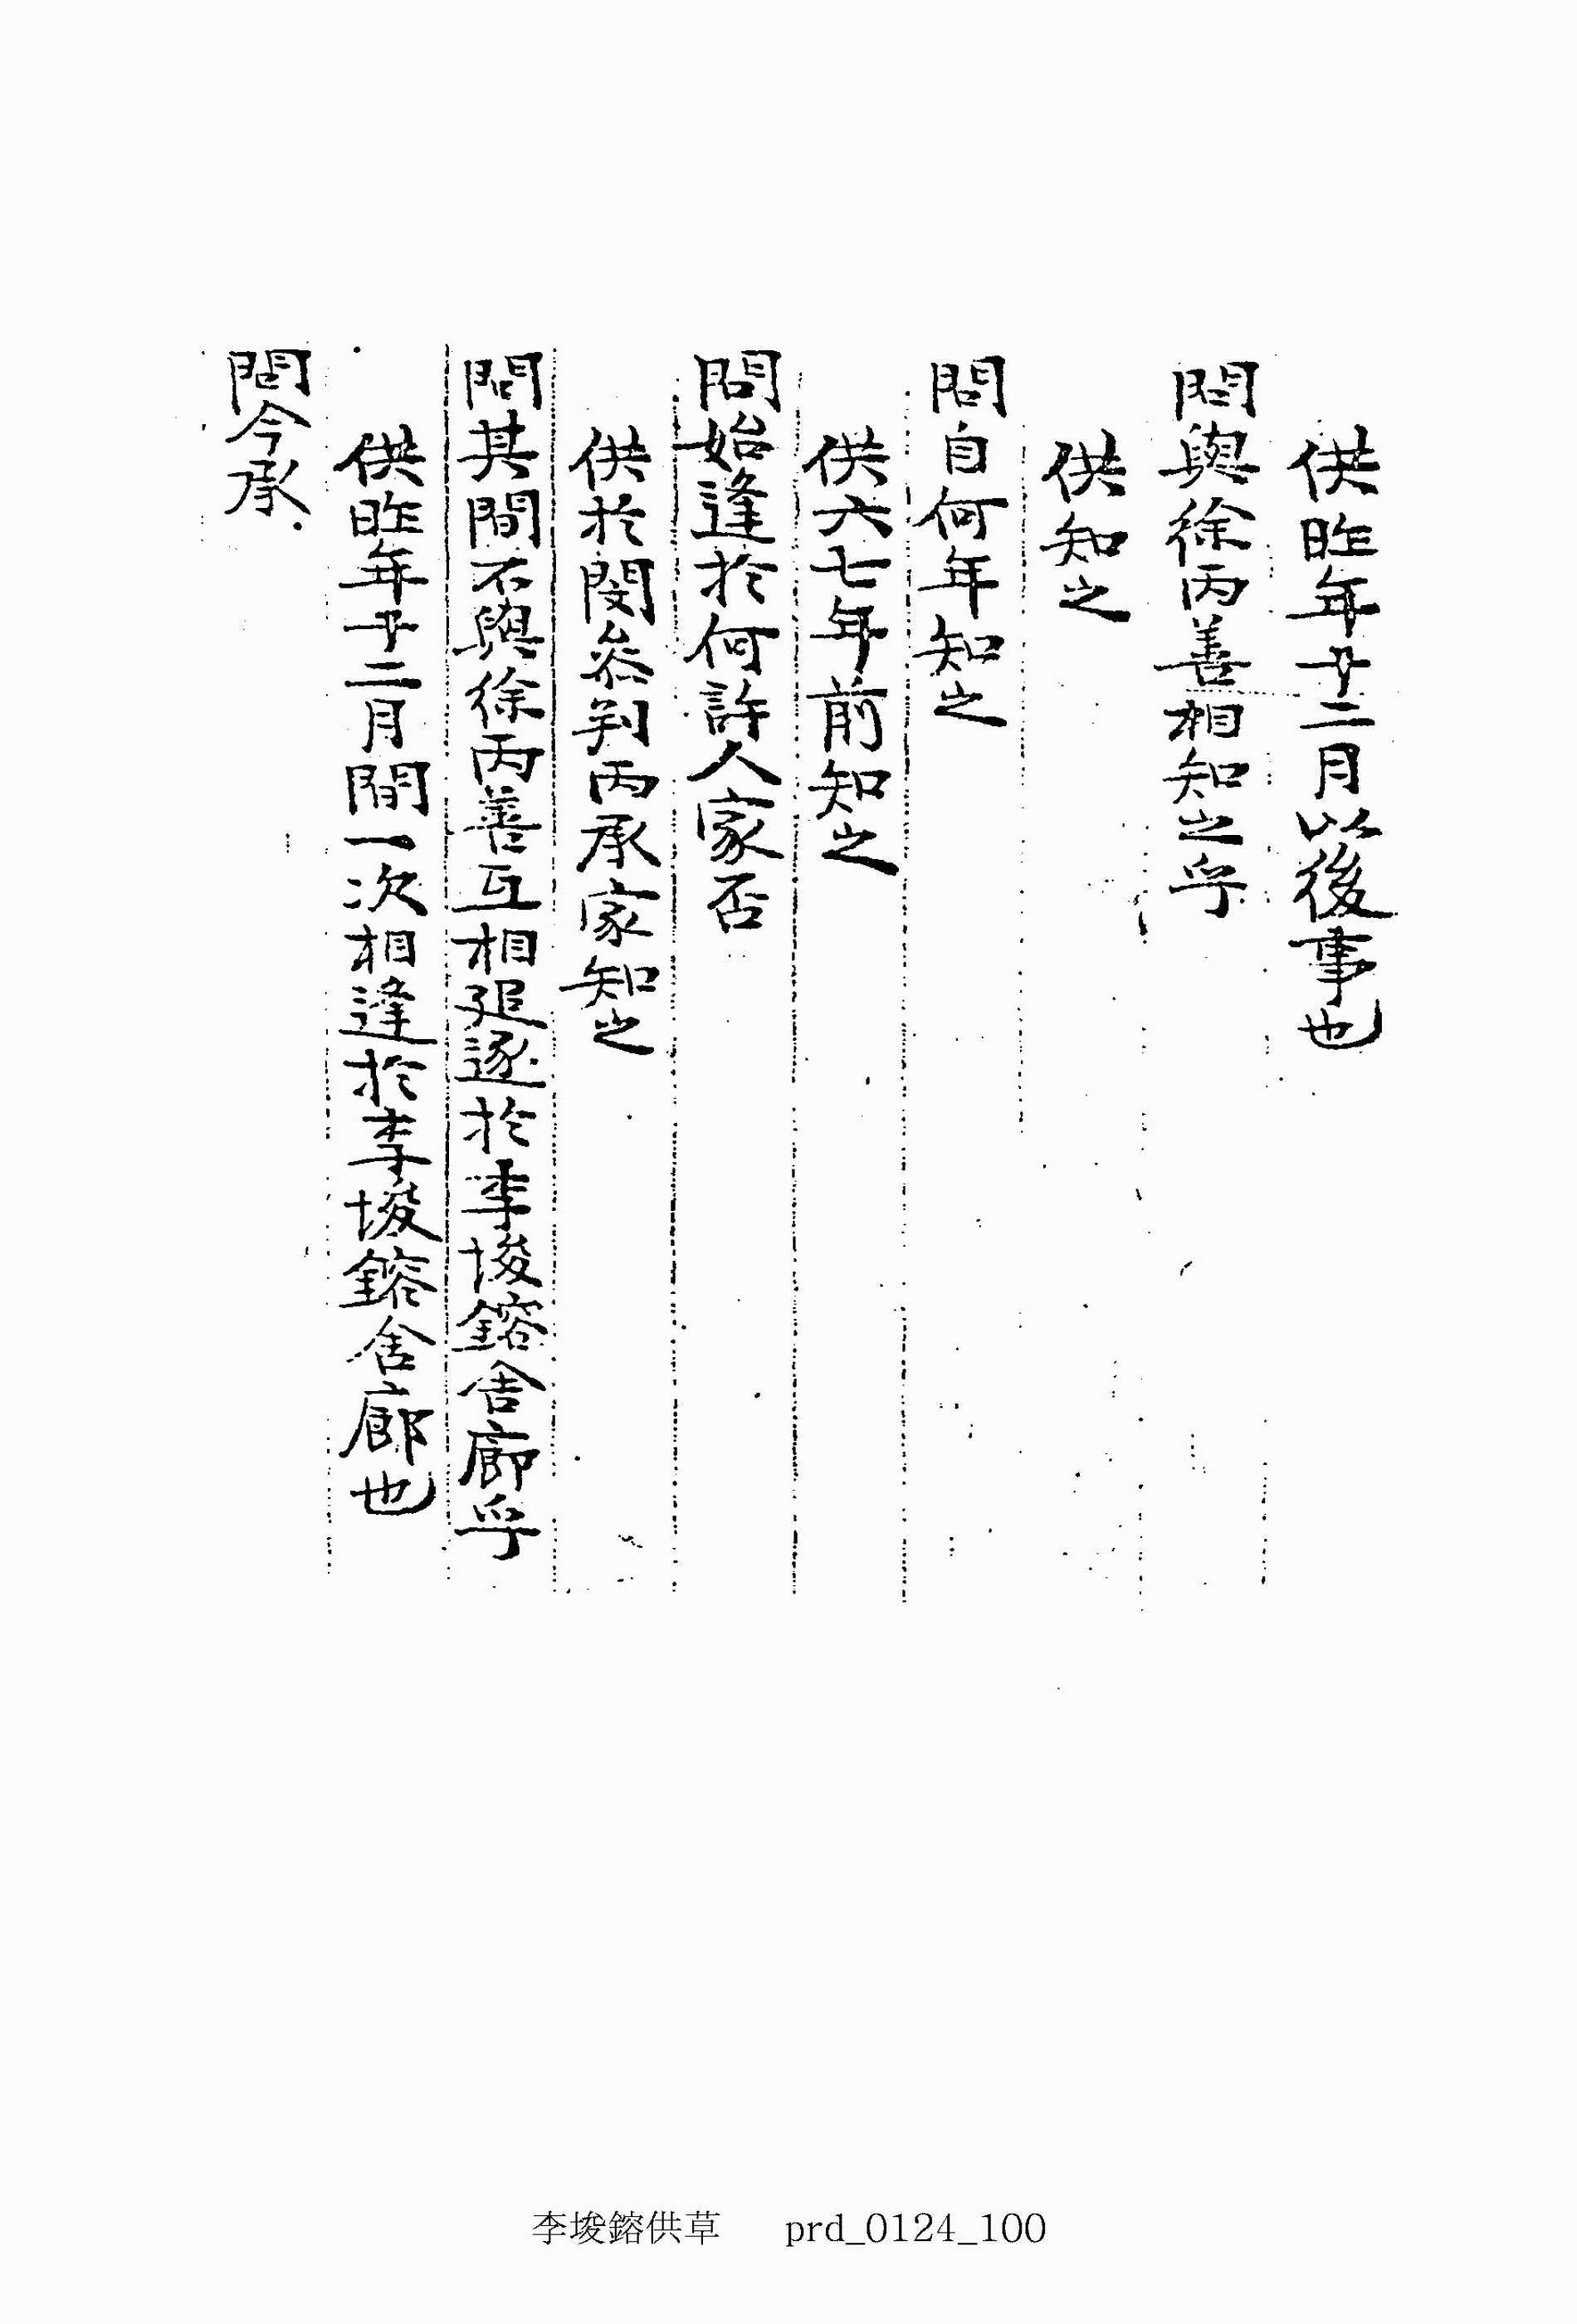 供昨年十二月以後事也
問與徐丙善相知之乎
供知之
問自何年知之
供六七年前知之
問始逢於何許人家否
供於閔參判丙承家知之
問其間不與徐丙善互相追逐於李埈鎔舍廊乎
供昨年十二月間一次相逢於李埈鎔舍廊也
問今承
李埈鎔供草 prd_0124_100